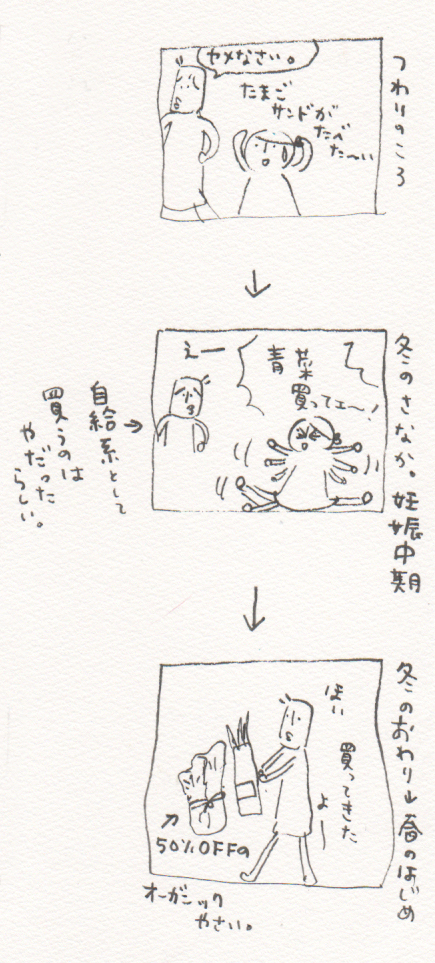 つわりのころ
たまご
サンドが
たべ
た〜い
ヤメなさい。
冬のさなか。妊娠中期
青菜
買ってェ〜!
えー
自給系として
買うのは
やだった
らしい。
冬のおわり↓春のはじめ
ほい
買ってきた
よー
50%OFFの
オーガニック
やさい。